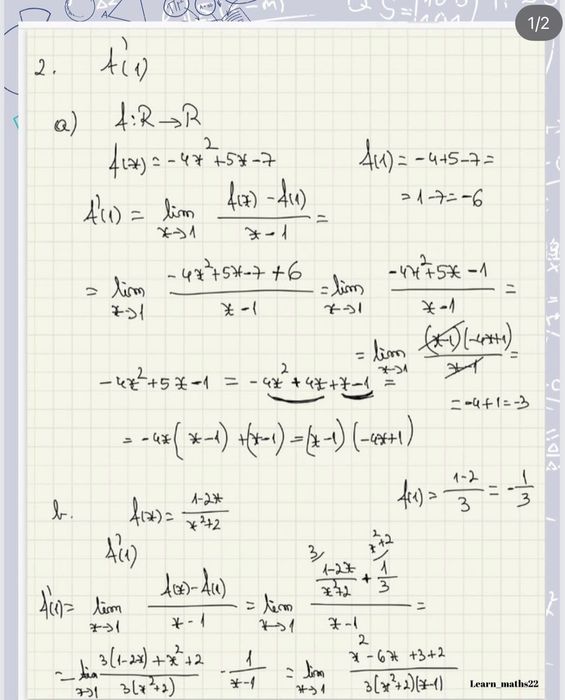 1/2
2. f'(1)
a) f:R→R
f(x) = -4x²+5x-7 f(1) = -4+5-7 =
= 1-7 = -6
f'(1) = lim x→1 (f(x) - f(1))/(x-1) =
= lim x→1 (-4x²+5x-7+6)/(x-1) = lim x→1 (-4x²+5x-1)/(x-1) =
= lim x→1 (x-1)(-4x+1)/(x-1) =
-4x²+5x-1 = -4x²+4x+x-1 =
= -4+1 = -3
= -4x(x-1)+(x-1) = (x-1)(-4x+1)
b. f(x) = (1-2x)/(x²+2) f(1) = (1-2)/3 = -1/3
f'(1)
f'(1) = lim x→1 (f(x) - f(1))/(x-1) = lim x→1 (3/ (1-2x)/(x²+2) + x²+2/ 1/3)/(x-1) =
= lim x→1 (3(1-2x)+x²+2)/(3(x²+2)) · 1/(x-1) = lim x→1 (x²-6x+3+2)/(3(x²+2)(x-1))
Learn_maths22